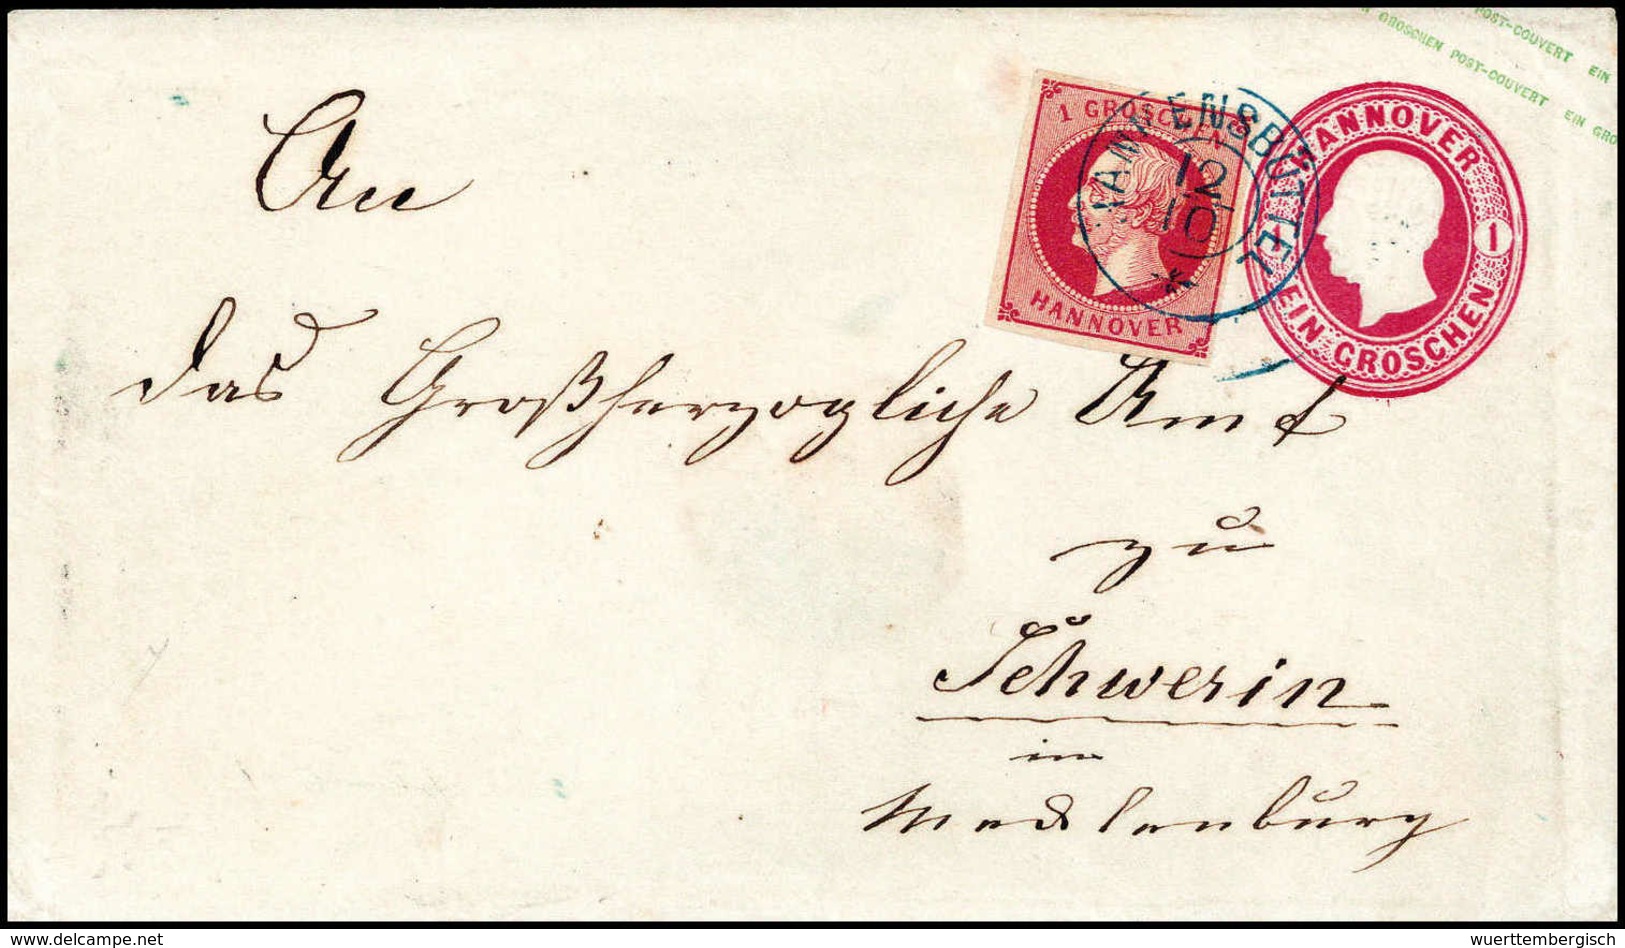 POST-COUVERT EIN
GROSCHEN POST-COUVERT EIN GRO
1 GROSCHEN
HANNOVER
12
10
HANNOVER
1
EIN GROSCHEN
An
das Großherzogliche Amt
zu
Schwerin
in
Mecklenburg
wuerttembergisch
www.delcampe.net